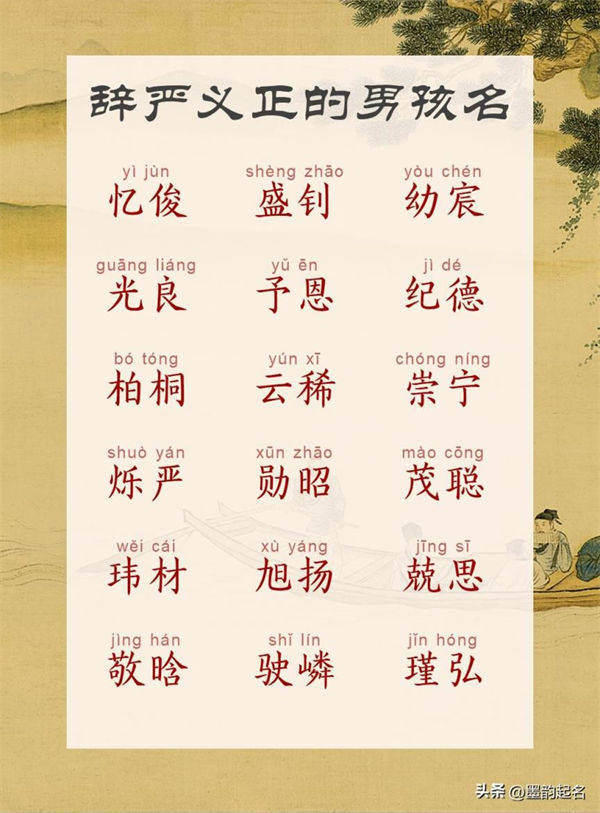 辞严义正的男孩名
yì jùn shèng zhāo yòu chén
忆俊 盛钊 幼宸
guāng liáng yǔ ēn jì dé
光良 予恩 纪德
bó tóng yún xī chóng níng
柏桐 云稀 崇宁
shuò yán xūn zhāo mào cōng
烁严 勋昭 茂聪
wěi cái xù yáng jīng sī
玮材 旭扬 兢思
jìng hán shǐ lín jǐn hóng
敬晗 驶嶙 瑾弘
头条 @墨韵起名